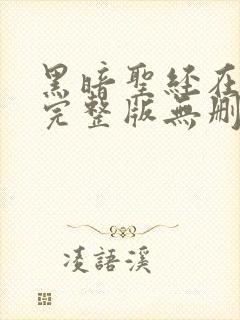 黑暗聖經在
完整版無刪
凌語溪